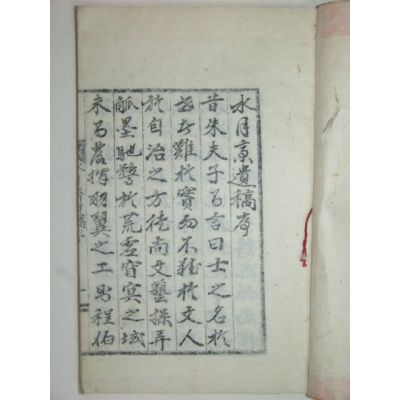 水月亭遺稿序
昔朱夫子有言曰士之名於
世者難於實而不難於文人
於自治之方徒尚文藝操弄
觚墨馳騖於荒虛窅冥之域
未有發揮羽翼之工程伯